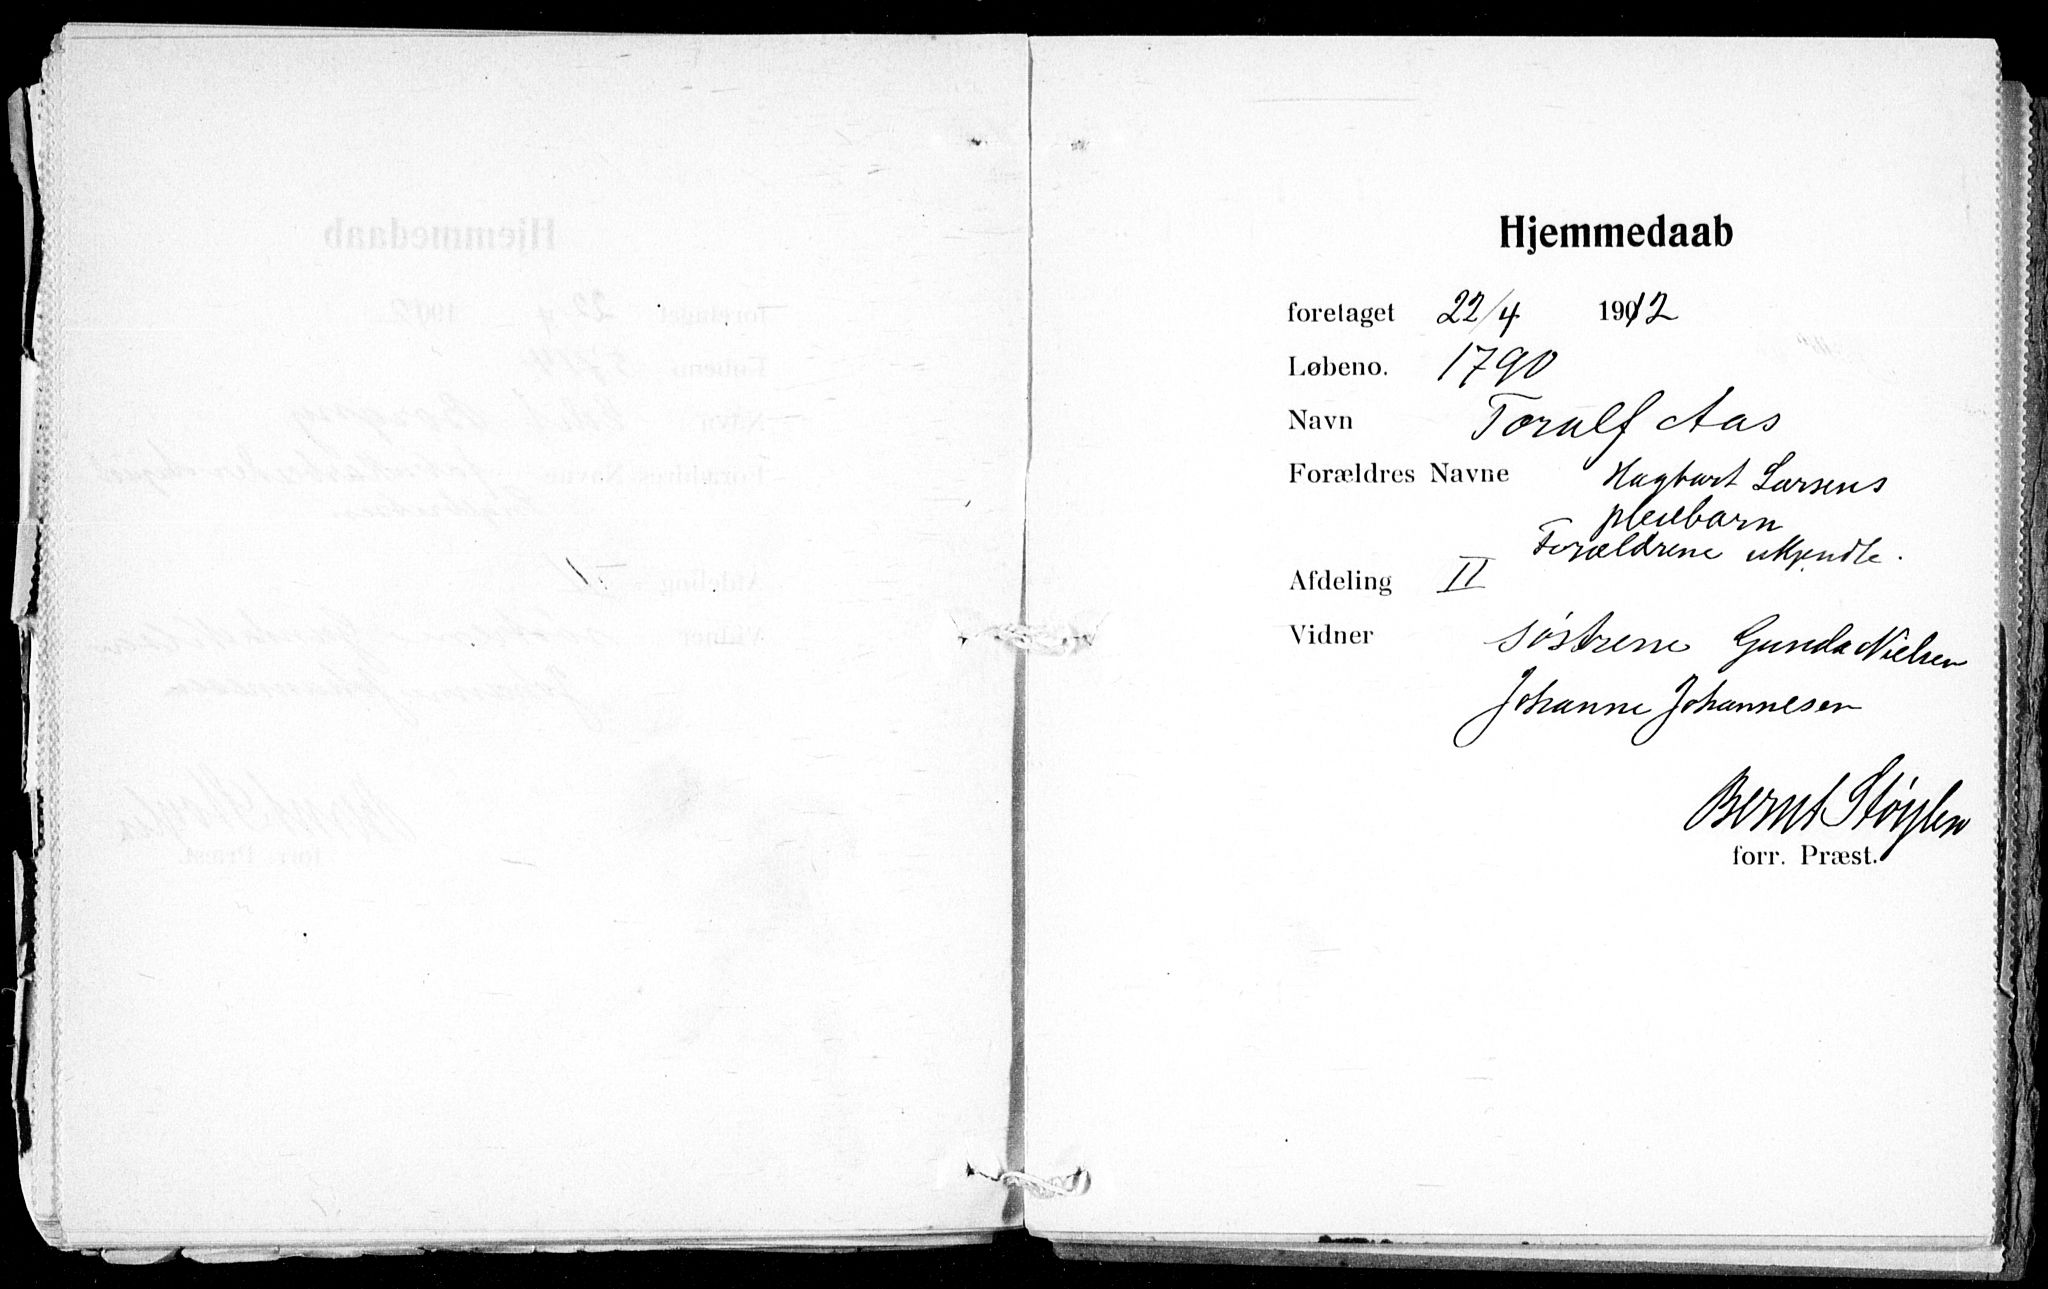 Hjemmedaab
foretaget 22/4 1912
Løbeno. 1790
Navn Toralf Aas
Forældres Navne Hagbart Larsens
pleiebarn
Forældrene ukjendte.
Afdeling II
Vidner Søstrene Gunda Nielsen
Johanne Johannesen
Bernt Støylen
forr. Præst.